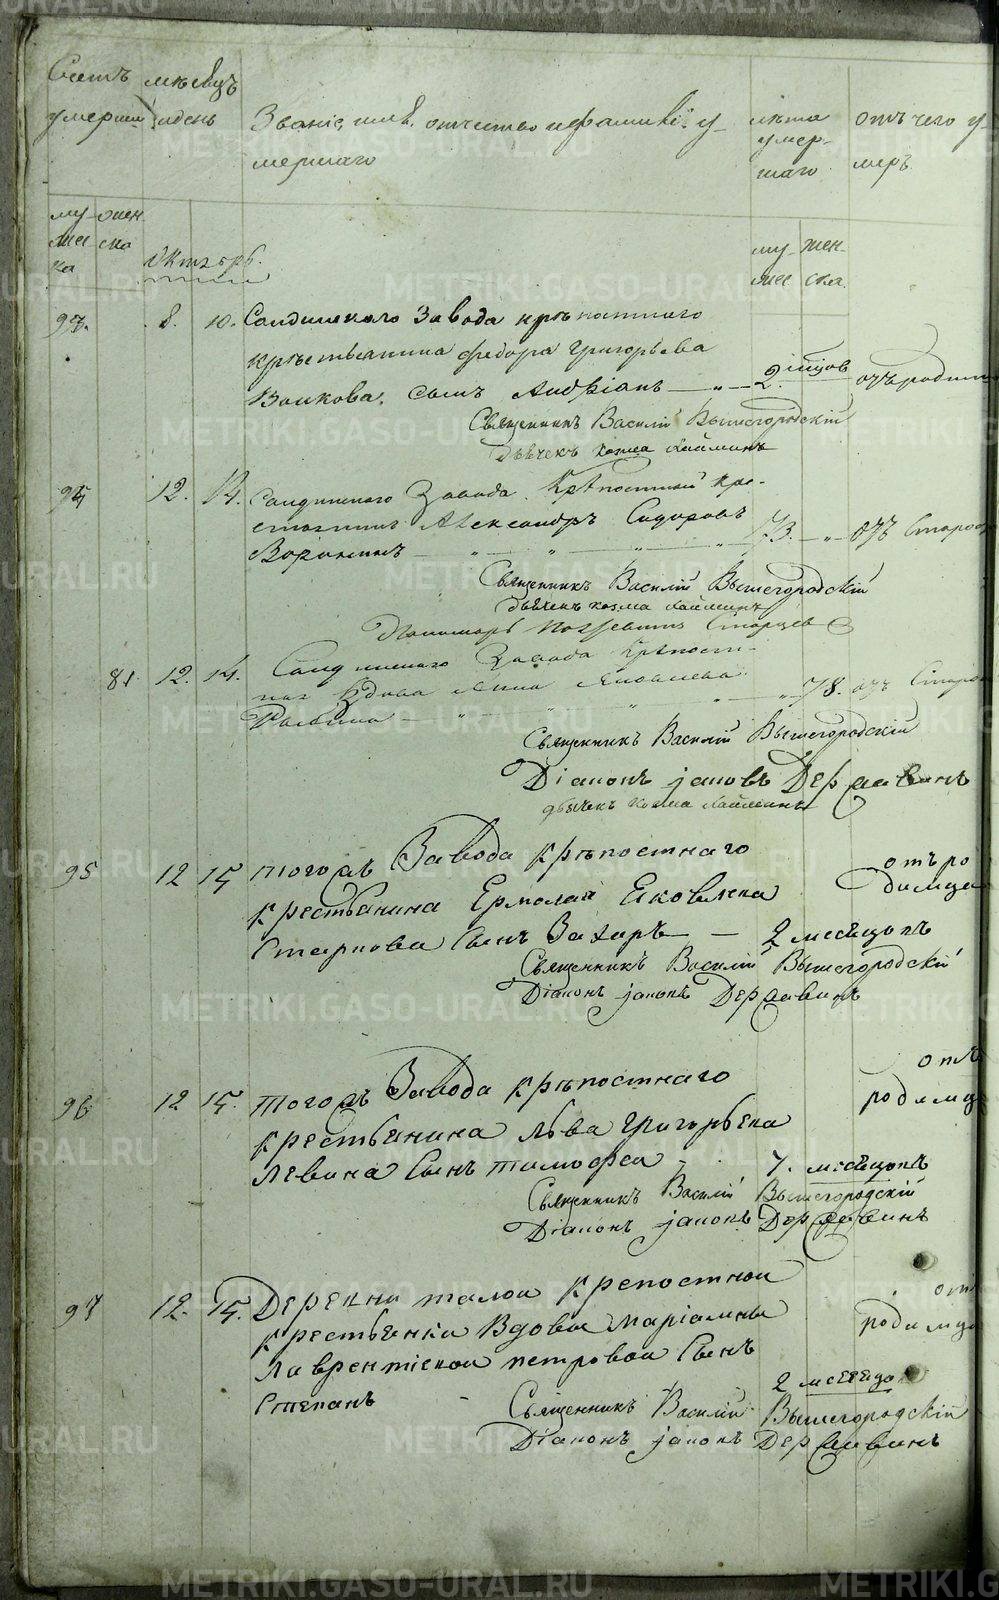 Счетъ умерши
мѣсяцъ и день
Званіе, имя, отчество и фамилія у-
мершаго
лѣта умер-
шаго
отъ чего у-
меръ.
му-
жес
ка
жен
ска
Октябрь.
му-
жес
жен-
ска.
93. 8. 10. Салдинскаго Завода крѣпостнаго
крестьянина Федора Григорьева
Волкова, сынъ Андріанъ — „ — 2. мѣсяцов отъ родимца
Священникъ Василій Вышегородскій
Дьячекъ Козма Хайминъ
94 12. 14. Салдинскаго Завода Крѣпостный кре-
стьянинъ Александръ Сидоровъ
Воронинъ — „ — „ — „ — 73. — „ — отъ Старос
Священникъ Василій Вышегородскій
дьячекъ козма Хайминъ
Пономарь Старцев
81 12. 14. Салдинскаго Завода Крѣпост-
ная Вдова Анна Яковлева
— „ — 78. отъ Старо
Священникъ Василій Вышегородскій
Діаконъ Іаковъ Державинъ
дьячек Козма Хайминъ
95 12 15 того жъ Завода крѣпостнаго отъ ро
крестьянина Ермолая Яковлева димца
Старкова Сынъ Захаръ — 2 месяцовъ
Священникъ Василій Вышегородскій
Діаконъ Іаковъ Державинъ
96 12 15. того жъ Завода крѣпостнаго отъ
крестьянина Льва Григорьева родимца
Левина Сынъ тимофеа - 7. месяцовъ
Священникъ Василій Вышегородскій
Діаконъ Іаковъ Державинъ
97 12. 15. Деревни талои Крепостнои от
крестьянки Вдовы Маріамны родимца
Лаврентіевои петровои Сынъ
Степанъ - 2 месеца
Священникъ Василій Вышегородскій
Діаконъ Іаковъ Державинъ
METRIKI.GASO-URAL.RU